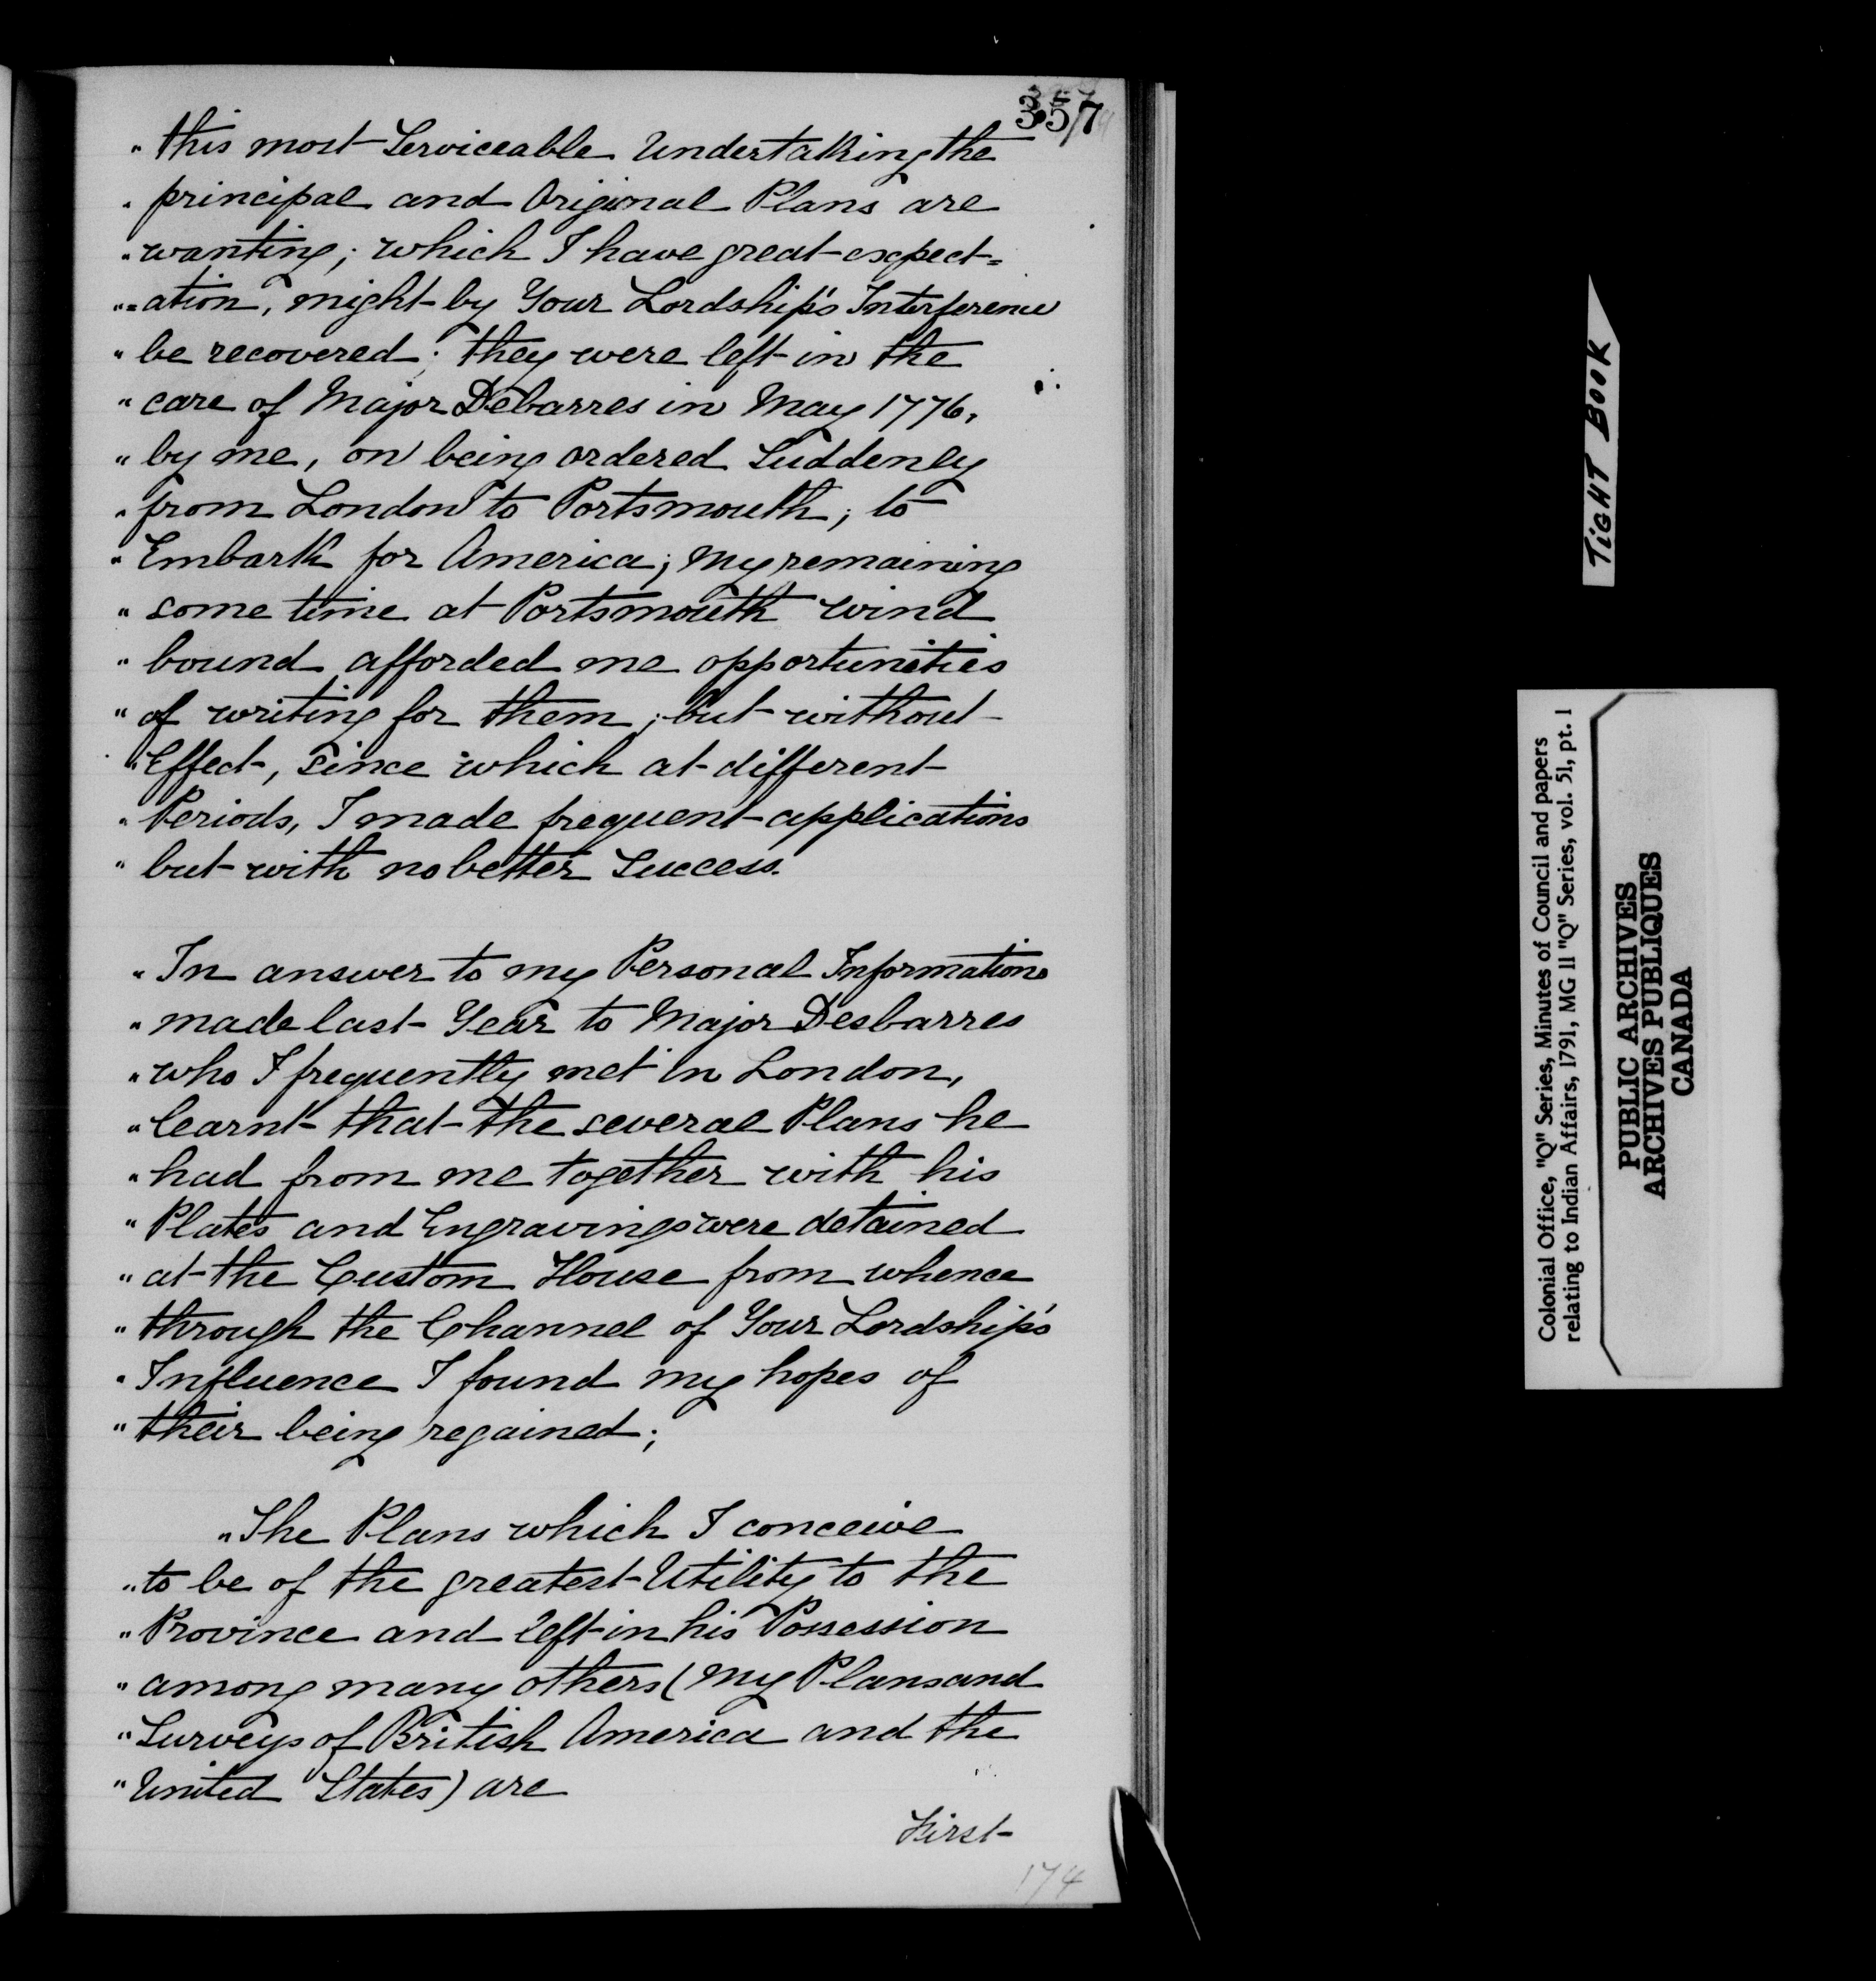 357
" this most Serviceable Undertaking the
" principal and Original Plans are
" wanting; which I have great expect=
"=ation, might by Your Lordship's Interference
" be recovered; they were left in the
" care of Major Debarres in May 1776,
" by me, on being ordered Suddenly
" from London to Portsmouth; to
" Embark for America; my remaining
" some time at Portsmouth wind
" bound afforded me opportunities
" of writing for them; but without
" Effect, since which at different
" Periods, I made frequent applications
" but with no better Success.
" In answer to my Personal Informations
" made last Year to Major Desbarres
" who I frequently met in London,
" learnt that the several Plans he
" had from me together with his
" Plates and Engravings were detained
" at the Custom House from whence
" through the Channel of Your Lordship's
" Influence I found my hopes of
" their being regained;
" The Plans which I conceive
" to be of the greatest Utility to the
" Province and left in his Possession
" among many others (my Plans and
" Surveys of British America and the
" United States) are
First
174
TIGHT BOOK
Colonial Office, "Q" Series, Minutes of Council and papers
relating to Indian Affairs, 1791, MG 11 "Q" Series, vol. 51, pt. 1
PUBLIC ARCHIVES
ARCHIVES PUBLIQUES
CANADA